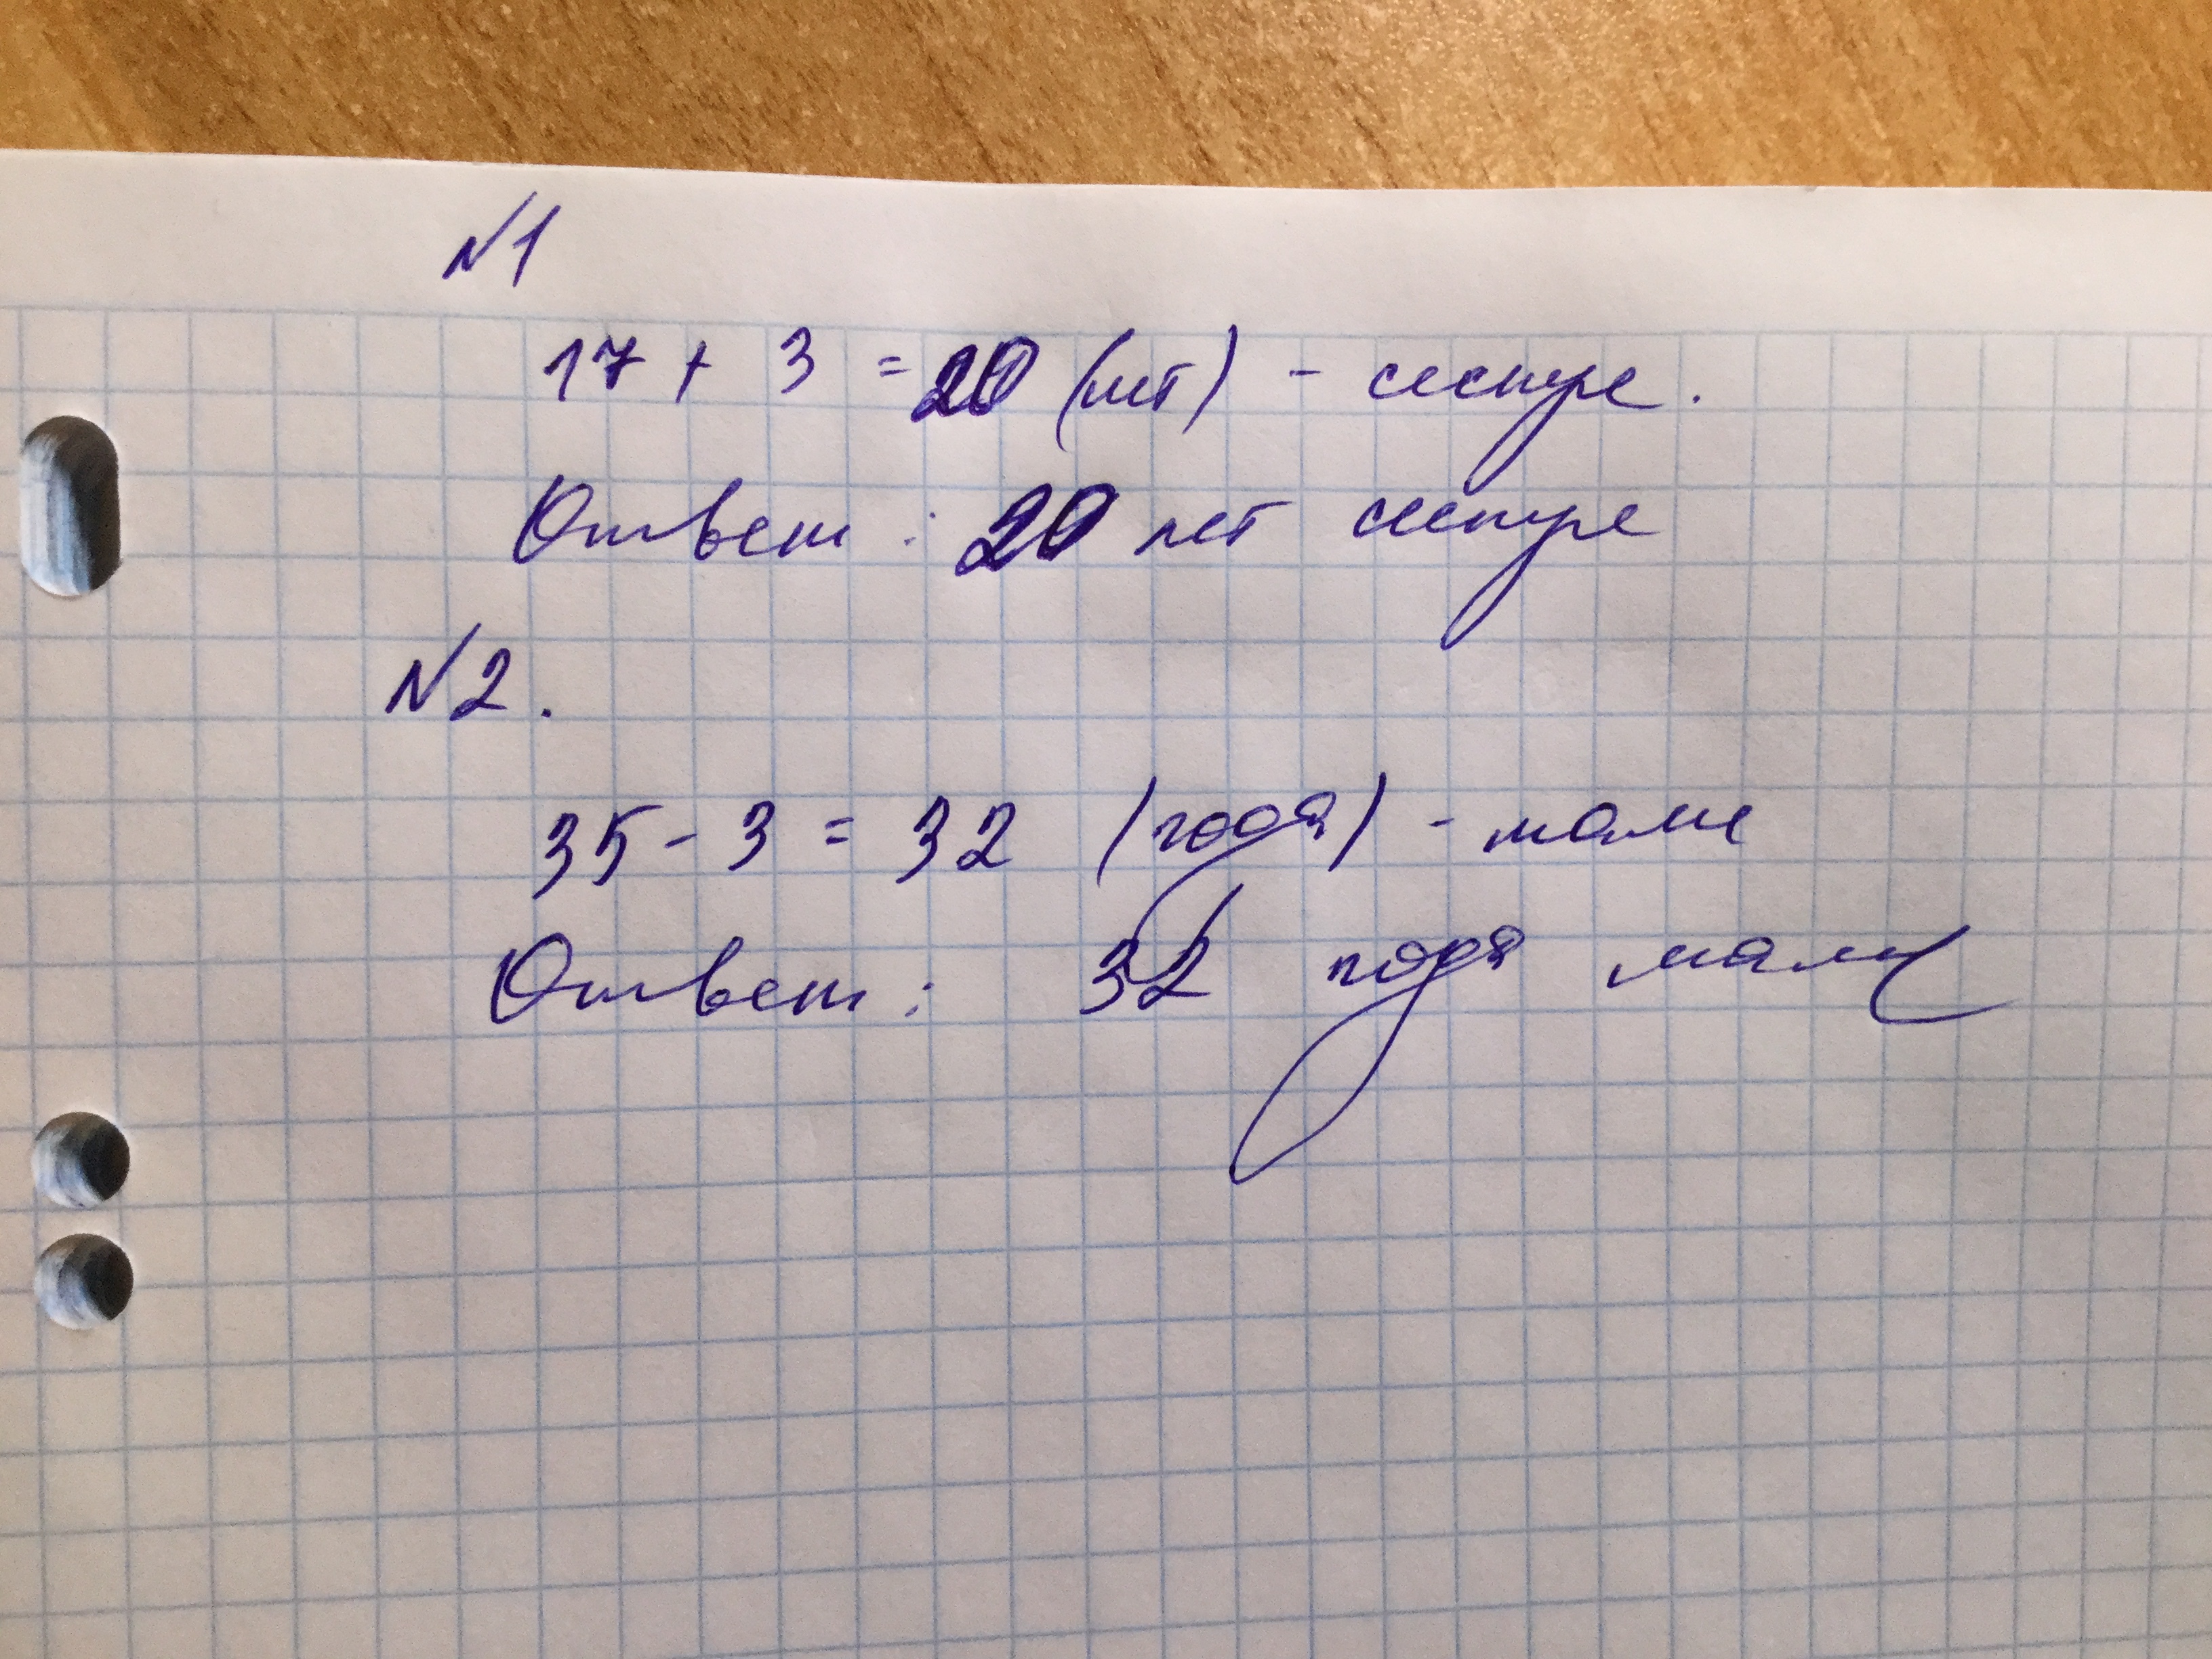 №1
17 + 3 = 20 (лет) - сестре.
Ответ : 20 лет сестре
№2.
35 - 3 = 32 (года) - маме
Ответ : 32 года маме